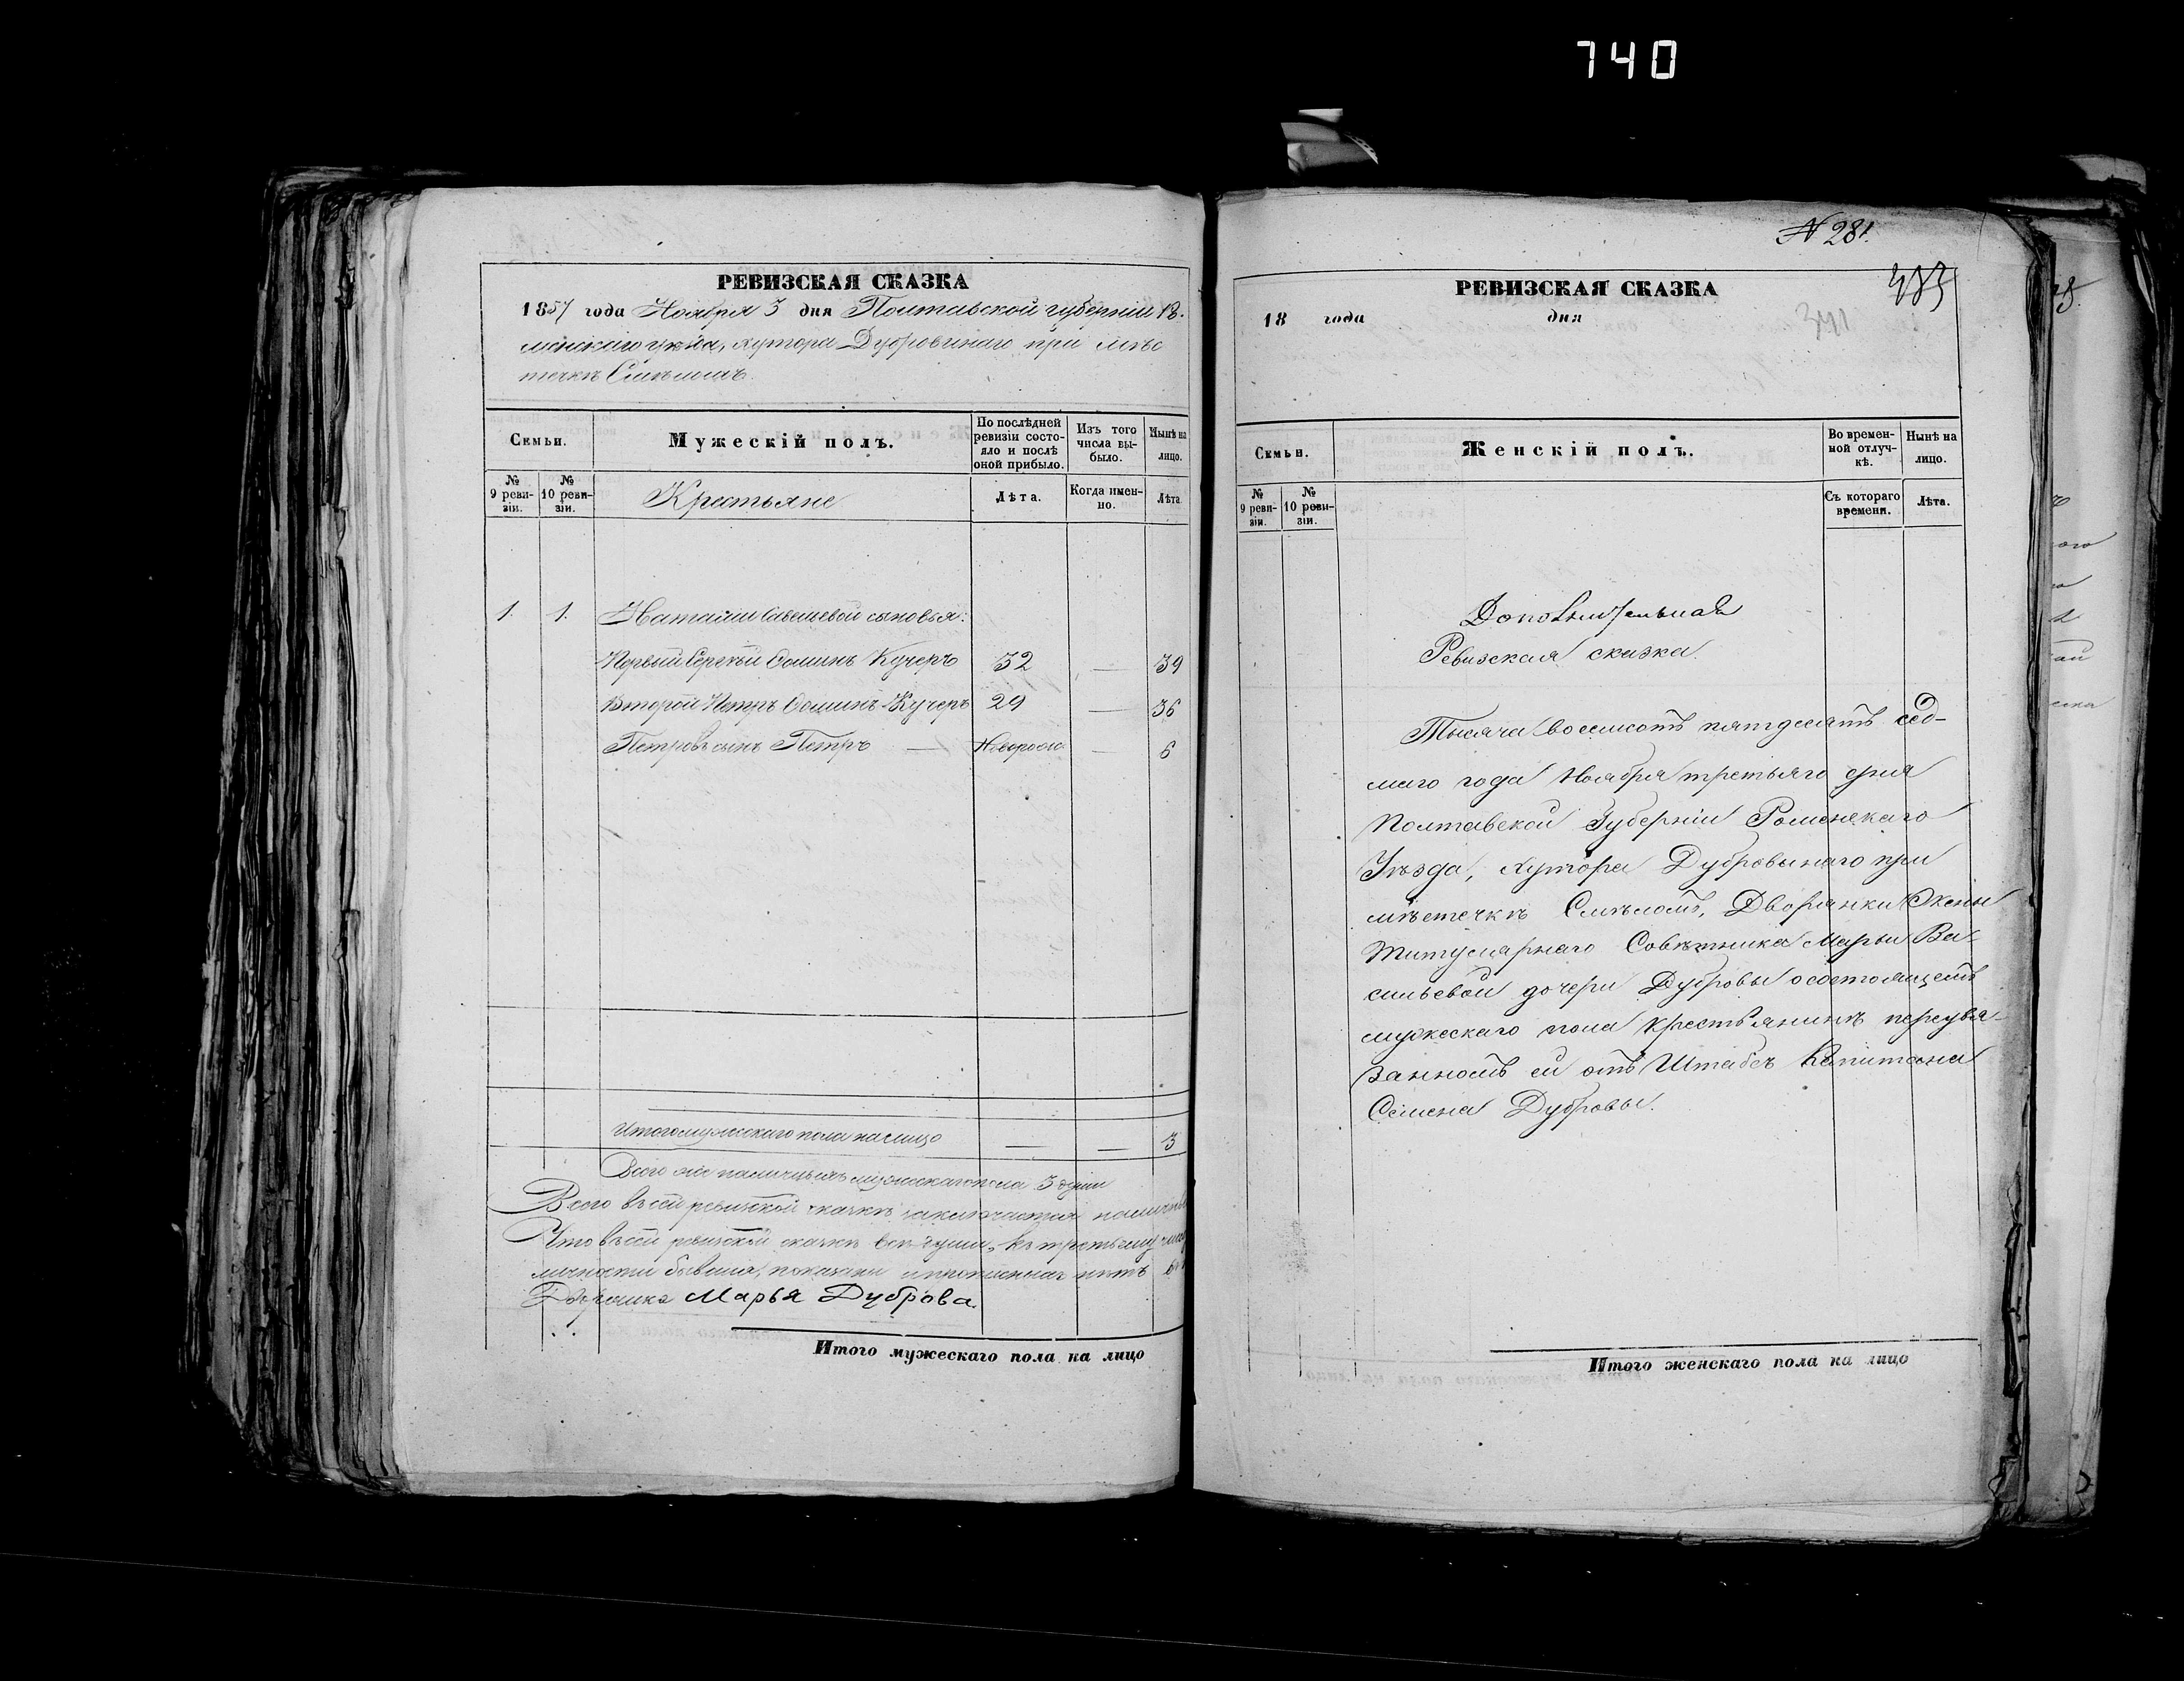 740
РЕВИЗСКАЯ СКАЗКА
1857 года Ноября 3 дня Полтавской губерніи
менскаго уѣзда, хутора Дубровинаго при мѣс
течкѣ Смѣломъ.
Семьи.
Мужескій полъ.
По послѣдней ревизіи состояло и послѣ оной прибыло.
Изъ того числа выбыло.
Нынѣ на лицо.
№ 9 ревизіи.
№ 10 ревизіи.
Крестьяне
Лѣта.
Когда именно.
Лѣта.
1. 1. Наталіи сыновья:
Первый Сергѣй Ѳоминъ Кучеръ 32 — 39
Второй Петръ Ѳоминъ Кучеръ 29 — 36
Петровъ сынъ Петръ — Новорож. — 6
Итого мужескаго пола на лицо — — 3
Всего же наличныхъ мужескаго пола 3 души
Всего въ сей ревизской сказкѣ заключается
Что въ сей ревизской сказкѣ всѣ души, къ третьему
бывшія, показаны и прописныхъ нѣтъ
Марья Дуброва.
Итого мужескаго пола на лицо
№ 281.
341
РЕВИЗСКАЯ СКАЗКА
18 года дня
Семьи.
Женскій полъ.
Во временной отлучкѣ.
Нынѣ на лицо.
№ 9 ревизіи.
№ 10 ревизіи.
Съ котораго времени.
Лѣта.
Дополнительная
Ревизская сказка
Тысяча восемсотъ пятдесятъ сед-
маго года Ноября третьяго дня
Полтавской Губерніи Роменскаго
Уѣзда, хутора Дубровинаго при
мѣстечкѣ Смѣломъ, Дворянки Жены
Титулярнаго Совѣтника Марьи Ва-
сильевой дочери Дубровы о состоящемъ
мужескаго пола крестьянинѣ переука-
занномъ ей отъ Штабсъ Капитана
Семена Дубровы.
Итого женскаго пола на лицо